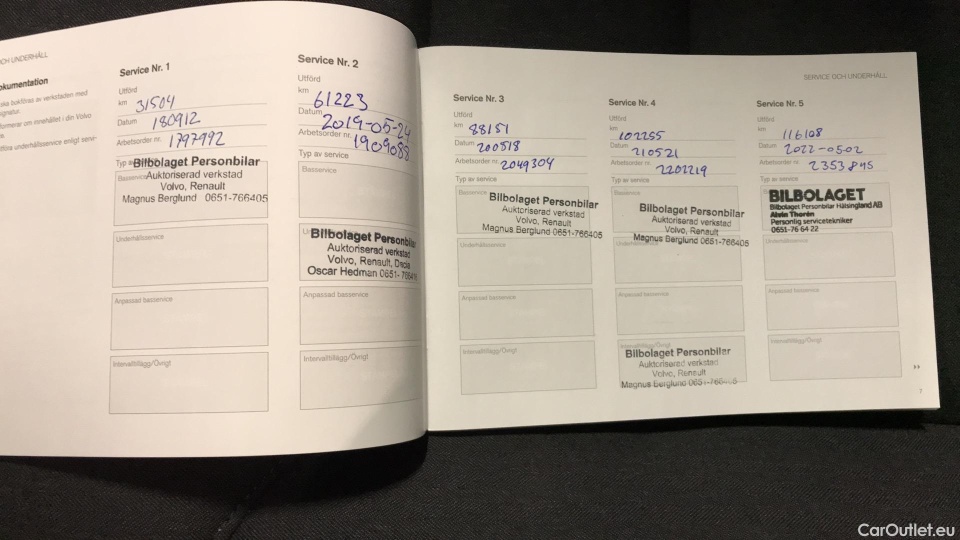 OCH UNDERHÅLL
okumentation
ska bokföras av verkstaden med
signatur.
formerar om innehållet i din Volvo
tföra underhållsservice enligt servi-
Service Nr. 1
Utförd
km 31504
Datum 180912
Arbetsorder nr. 1797992
Typ av
Bilbolaget Personbilar
Auktoriserad verkstad
Volvo, Renault
Magnus Berglund 0651-766405
Basservice
Underhållsservice
Anpassad basservice
Intervalltillägg/Övrigt
Service Nr. 2
Utförd
km 61223
Datum 2019-05-24
Arbetsorder nr. 1909088
Typ av service
Basservice
Bilbolaget Personbilar
Auktoriserad verkstad
Volvo, Renault, Dacia
Oscar Hedman 0651-7664
Anpassad basservice
Intervalltillägg/Övrigt
SERVICE OCH UNDERHÅLL
Service Nr. 3
Utförd
km 88151
Datum 200518
Arbetsorder nr. 2049304
Typ av service
Basservice
Bilbolaget Personbilar
Auktoriserad verkstad
Volvo, Renault
Magnus Berglund 0651-766405
Underhållsservice
Anpassad basservice
Intervalltillägg/Övrigt
Service Nr. 4
Utförd
km 102255
Datum 210521
Arbetsorder nr. 2202219
Typ av service
Basservice
Bilbolaget Personbilar
Auktoriserad verkstad
Volvo, Renault
Magnus Berglund 0651-766405
Underhållsservice
Anpassad basservice
Bilbolaget Personbilar
Auktoriserad verkstad
Volvo, Renault
Magnus Berglund 0651-766405
Service Nr. 5
Utförd
km 116108
Datum 2022-05-02
Arbetsorder nr. 2353845
Typ av service
BILBOLAGET
Bilbolaget Personbilar Hälsingland AB
Alvin Thorén
Personlig servicetekniker
0651-76 64 22
Underhållsservice
Anpassad basservice
Intervalltillägg/Övrigt
7
CarOutlet.eu